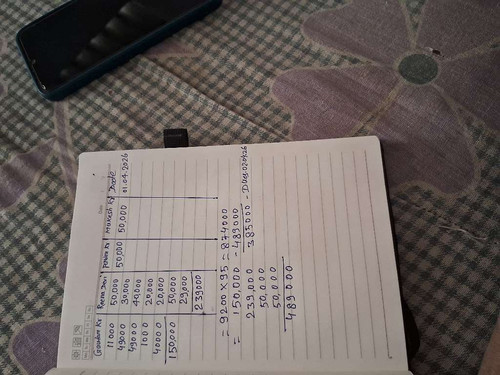 Goutam Kr Reena Devi Pawan Kr Mukesh Kr Date
11000 50,000 50,000 50,000 01.04.2026
49000 30,000
49000 40,000
1000 20,000
40000 20,000
150,000 50,000
29,000
239000
= 9200 × 95 = 874000
= 150,000 - 489000
239,000 385000 - Dues
50,000
50,000
489000